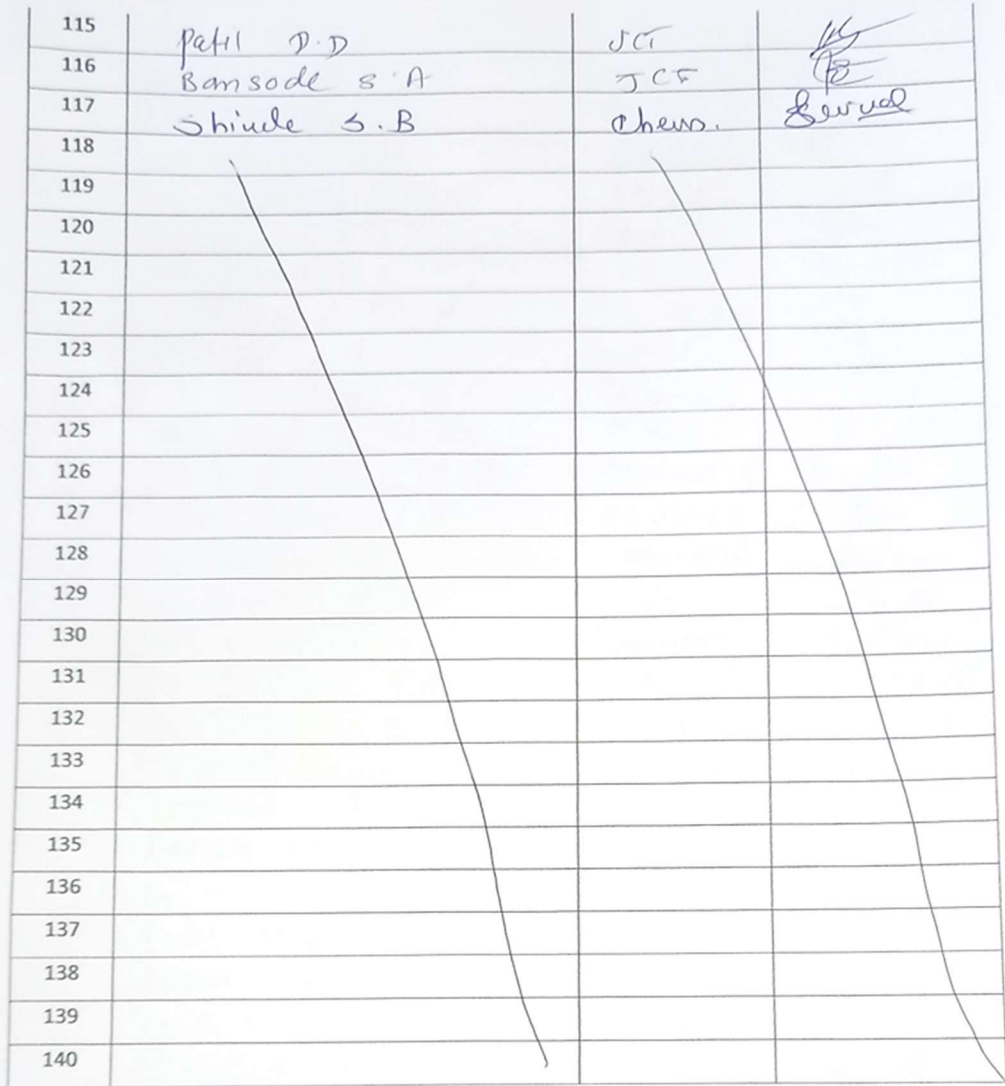 115 Patil D.D JCI
116 Bansode S A JCI
117 Shinde S.B Chem.
118
119
120
121
122
123
124
125
126
127
128
129
130
131
132
133
134
135
136
137
138
139
140